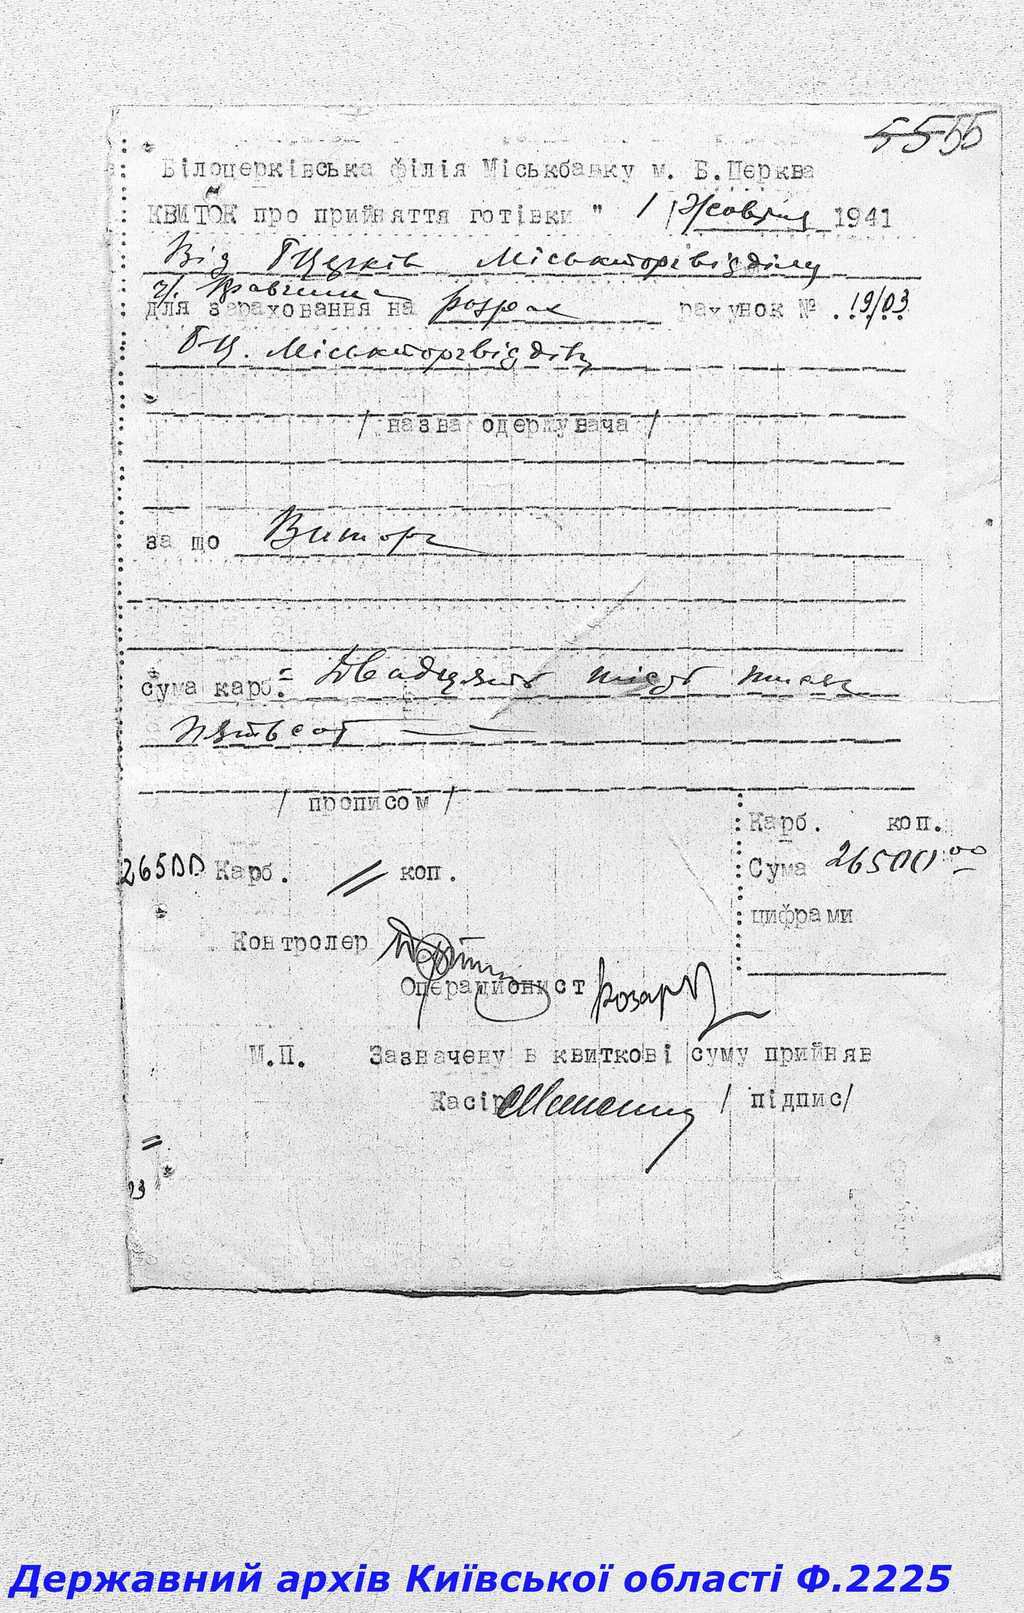 5555
Білоцерківська філія Міськбанку м. Б.Церква
КВИТОК про прийняття готівки " 1 Жовтня 1941
Від БЦерків Міськторгвідділу
ч/.
для зарахування на розрах рахунок № 19/03
Б-Ц. Міськторгвідділу
/ назва одержувача /
за що Виторг
сума карб. Двадцять шість тисяч
пятьсот
/ прописом /
Карб. коп.
26500 Карб. // коп.
Сума 26500 00
цифрами
Контролер
Операціонист
М.П. Зазначену в квиткові суму прийняв
Касір / підпис/
Державний архів Київської області Ф.2225